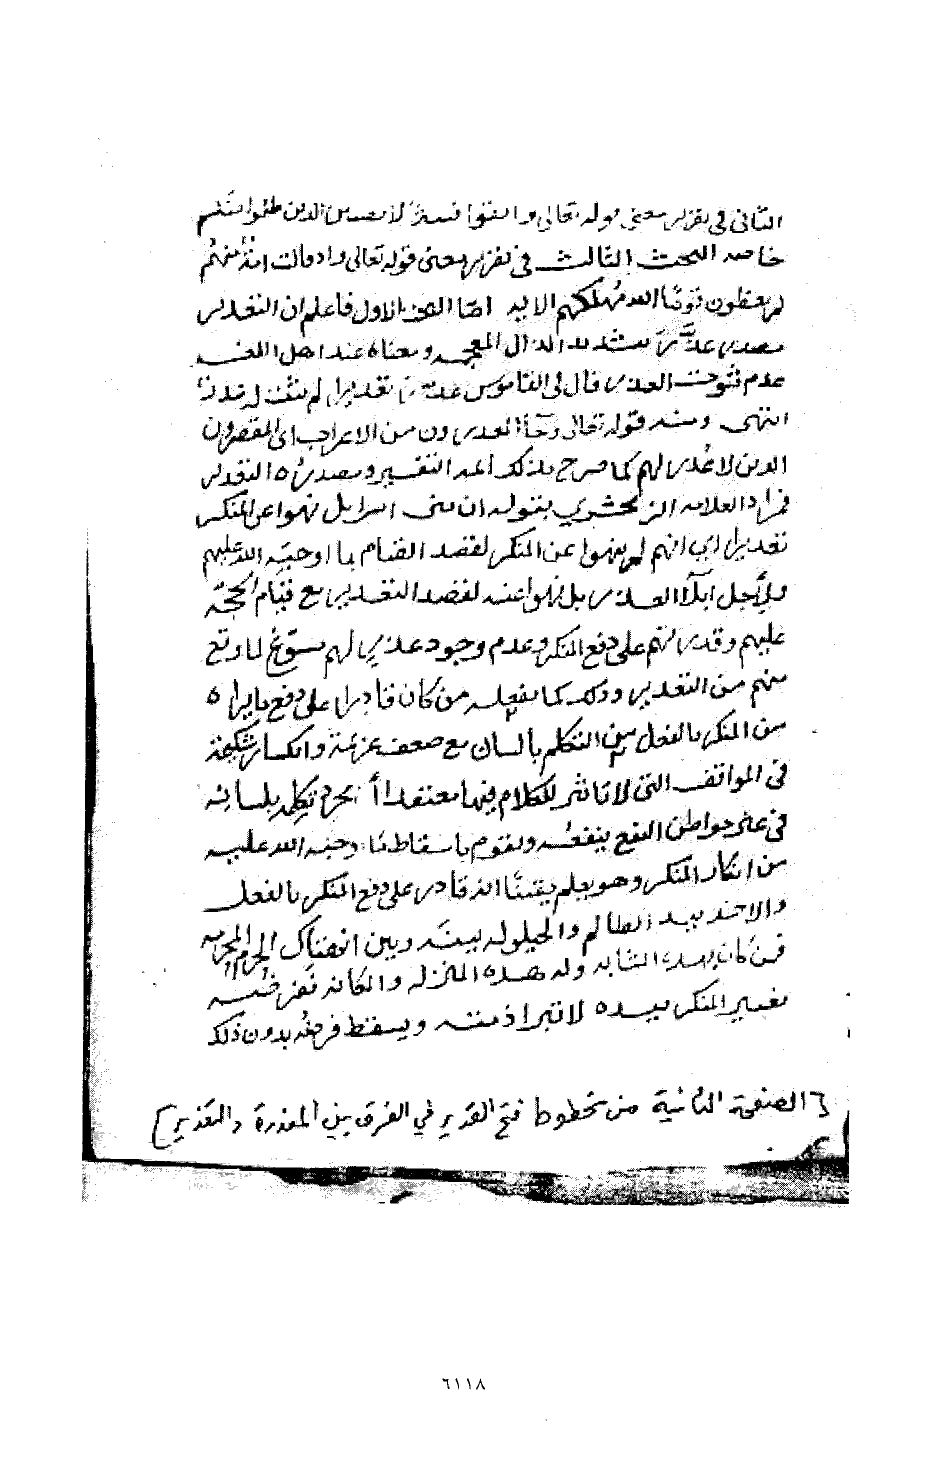 الثاني في تقرير معنى قوله تعالى واتقوا فتنة لا تصيبن الذين ظلموا منكم
خاصه البحث الثالث في تقرير معنى قوله تعالى واذ قالت امة منهم
لم تعظون قوما الله مهلكهم الايه اما البحث الاول فاعلم ان التعذير
مصدر عذّر بتشديد الذال المعجمه ومعناه عند اهل اللغه
عدم ثبوت العذر قال في القاموس عذّر تعذيرا لم يثبت له عذر
انتهى ومنه قوله تعالى وجاء المعذرون من الاعراب اي المقصرون
الذين لا عذر لهم كما صرح بذلك ائمه التفسير ومصدره التعذير
فمراد العلامه الزمخشري بقوله ان بني اسرايل نهوا عن المنكر
تعذيرا اي انهم لم ينهوا عن المنكر لقصد القيام بما اوجبه الله عليهم
ولأجل ابلاء العذر بل نهوا عنه لقصد التعذير مع قيام الحجه
عليهم وقدرتهم على دفع المنكر وعدم وجود عذر لهم مسوّغ لما وقع
منهم من التعذير وذلك كما يفعله من كان قادرا على دفع ما يراه
من المنكر بالفعل من التكلم باللسان مع ضعف عزيمة وانكسار شكيمة
في المواقف التي لا تاثير للكلام فيها معتقدا أن مجرد تكلمه بلسانه
في غير مواطن النفع ينفعه ويقوم باسقاط ما اوجبه الله عليه
من انكار المنكر وهو يعلم يقينا انه قادر على دفع المنكر بالفعل
والاخذ بيد الظالم والحيلوله بينه وبين انتهاك الحرم المحرمه
فمن كان بهذه المثابه وله هذه المنزله والمكانه ففرضه
تغيير المنكر بيده لا تبرا ذمته ويسقط فرضه بدون ذلك
[الصفحة الثانية من مخطوط فتح القدير في الفرق بين المعذرة والتعذير]
٦١١٨